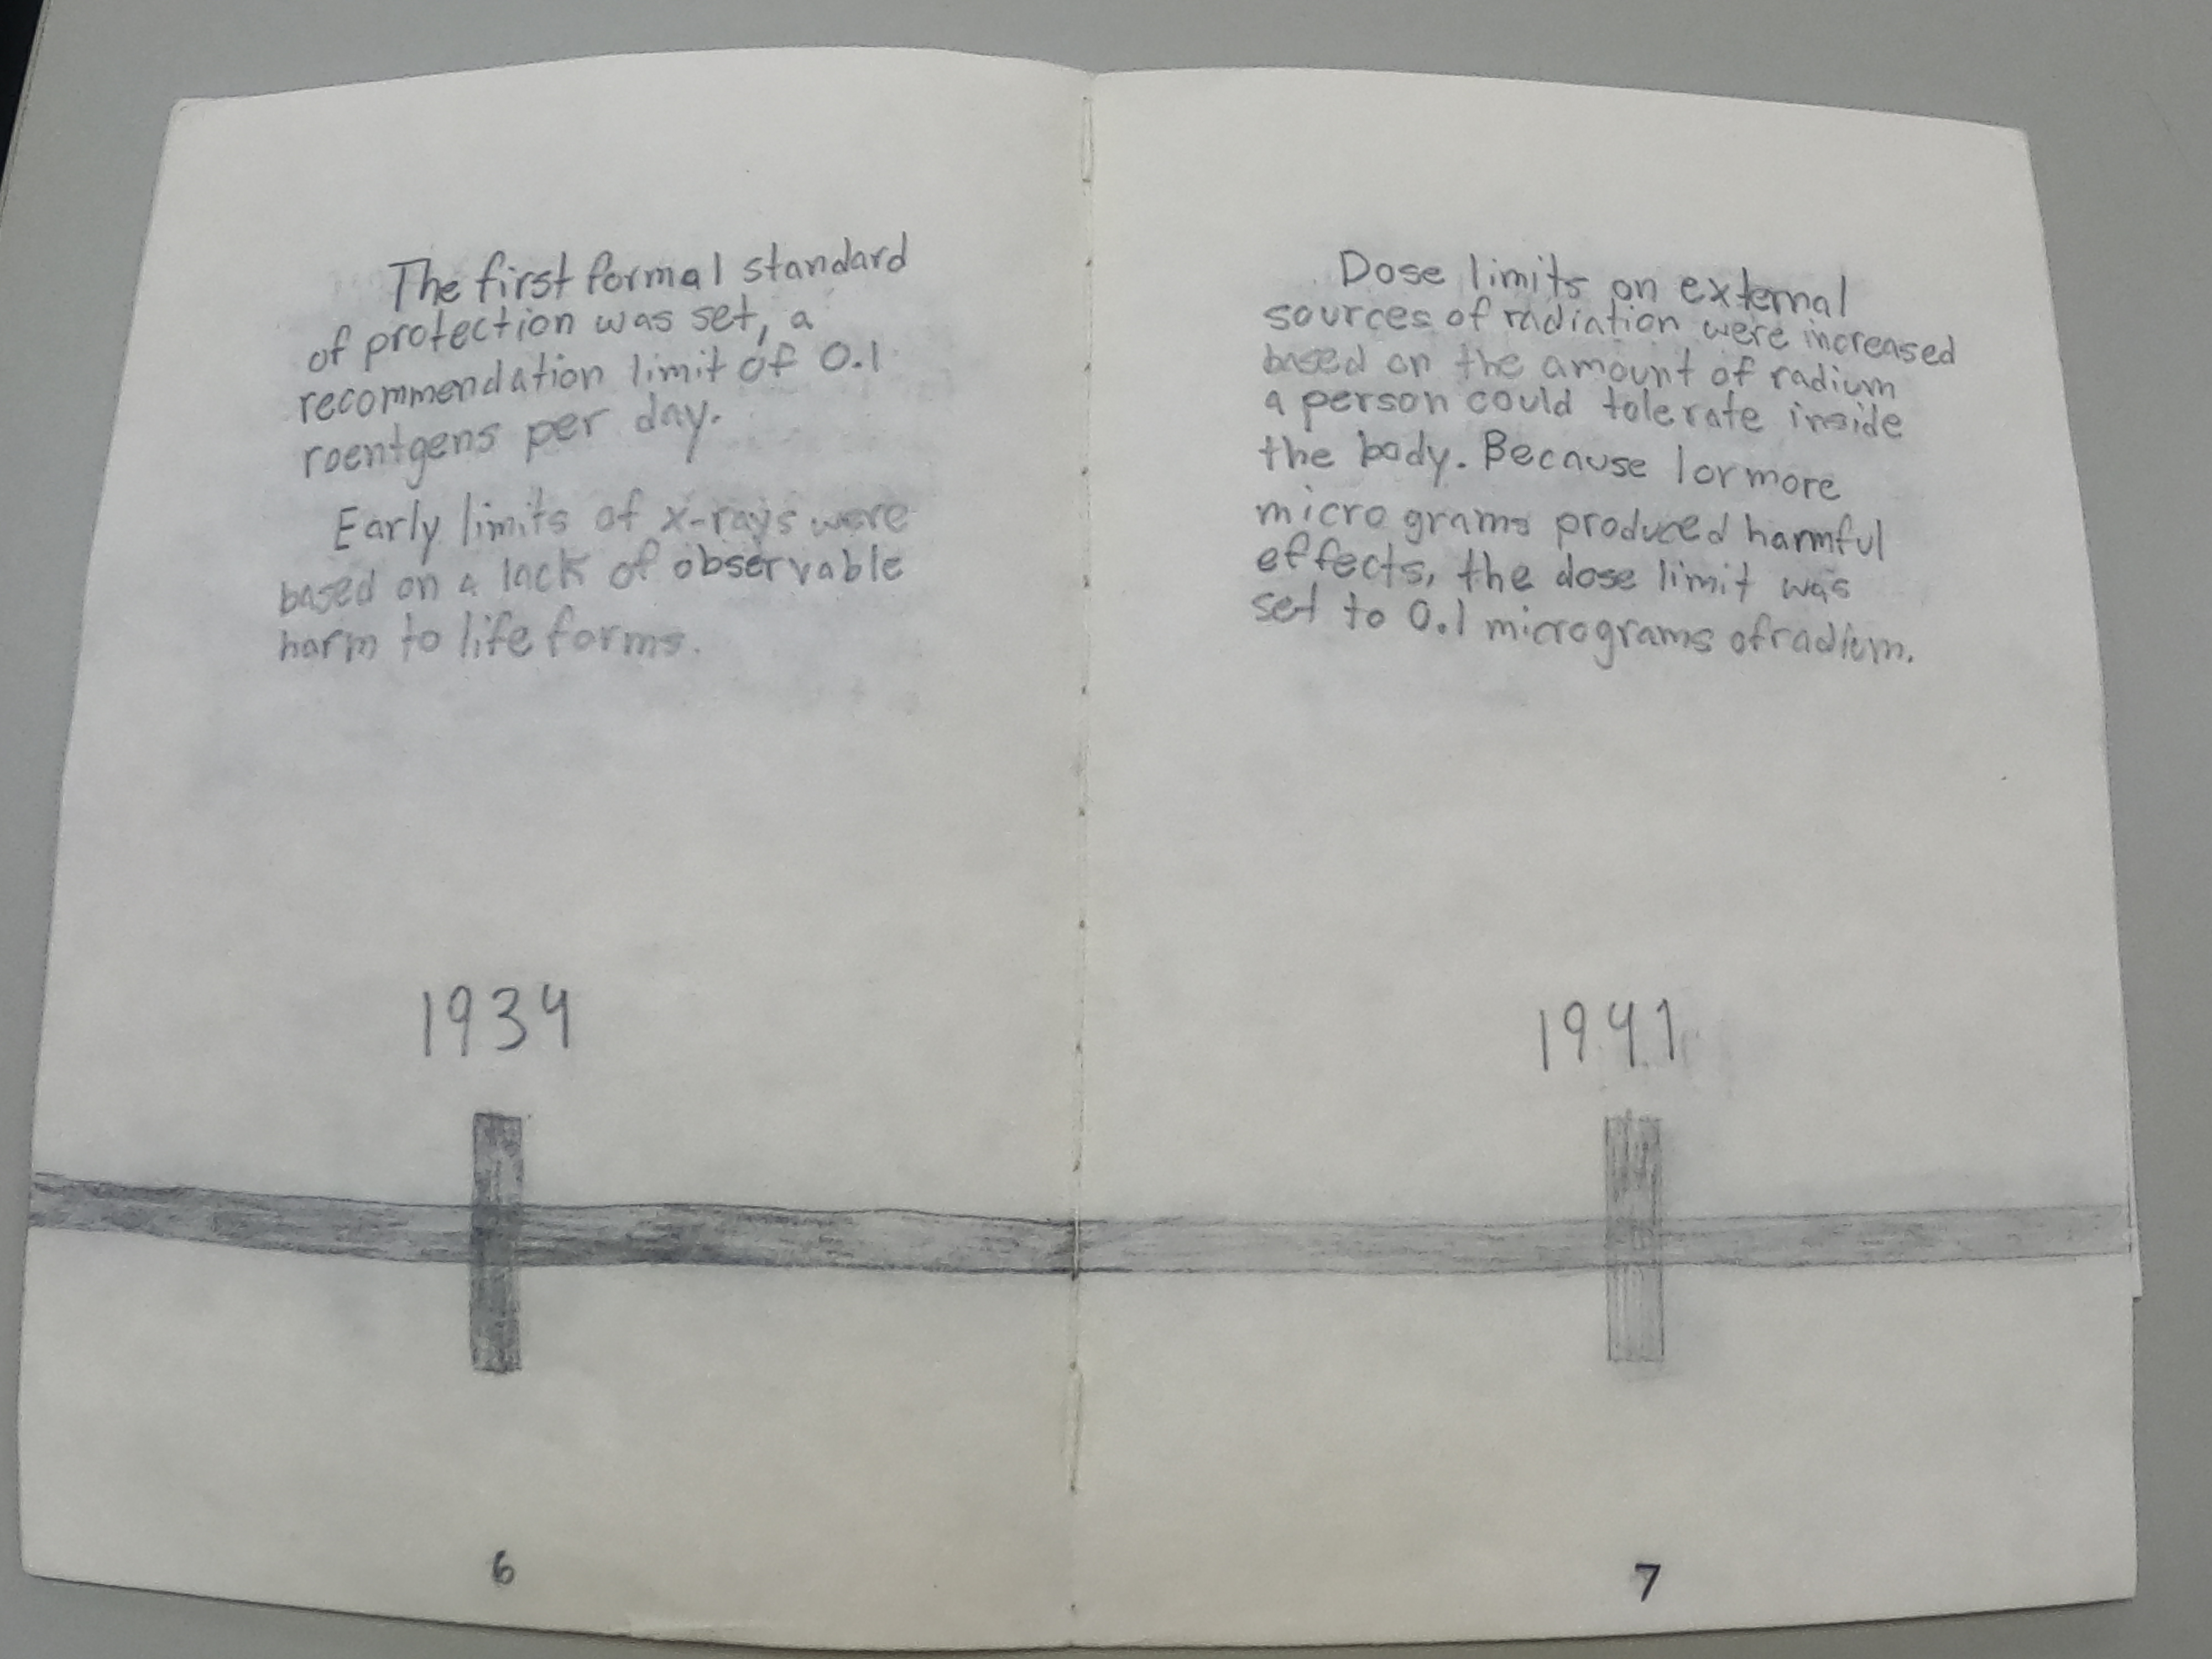 The first formal standard
of protection was set, a
recommendation limit of 0.1
roentgens per day.
Early limits of x-rays were
based on a lack of observable
harm to life forms.
1934
6
Dose limits on external
sources of radiation were increased
based on the amount of radium
a person could tolerate inside
the body. Because 1 or more
micro grams produced harmful
effects, the dose limit was
set to 0.1 micrograms of radium.
1941
7